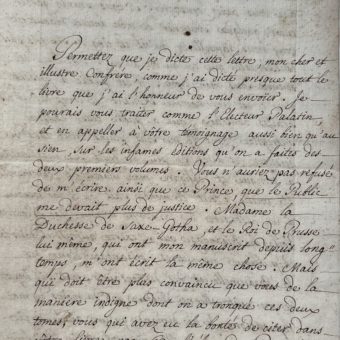 Permettez que je dicte cette lettre, mon cher et
illustre Confrère, comme j'ai dicté presque tout le
livre que j'ai l'honneur de vous envoier. Je
pourais vous traiter comme l'Electeur Palatin,
et en appeller à vôtre témoignage aussi bien qu'au
sien, sur les infames éditions qu'on a faites des
deux premiers volumes. Vous n'auriez pas refusé
de m'écrire ainsi que ce Prince que le Public
me devait plus de justice. Madame la
Duchesse de Saxe-Gotha, et le Roi de Prusse
lui même, qui ont mon manuscrit depuis long-
temps, m'ont écrit la même chose. Mais
qui doit être plus convaincu que vous de la
manière indigne dont on a tronqué ces deux
tomes, vous qui avez eu la bonté de citer dans